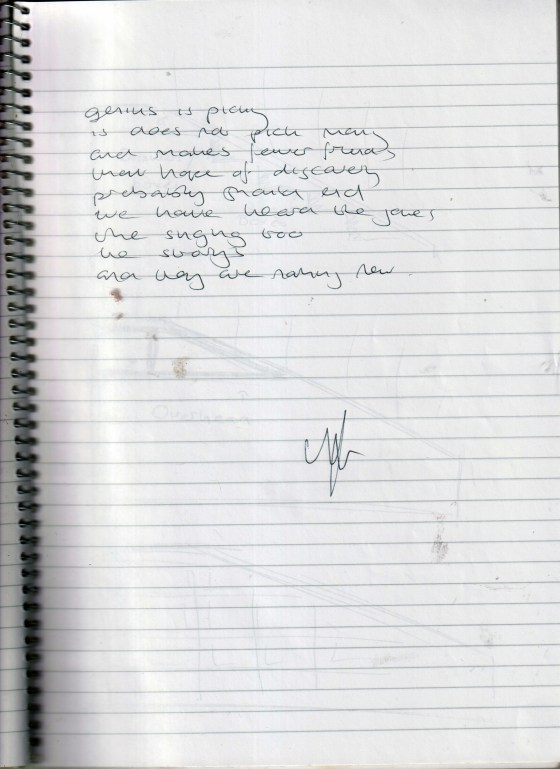 genius is picky
is does not pick many
and makes fewer friends
that hope of discovery
probably
we have heard the jokes
the singing too
the songs
and they are nothing new
Overhead